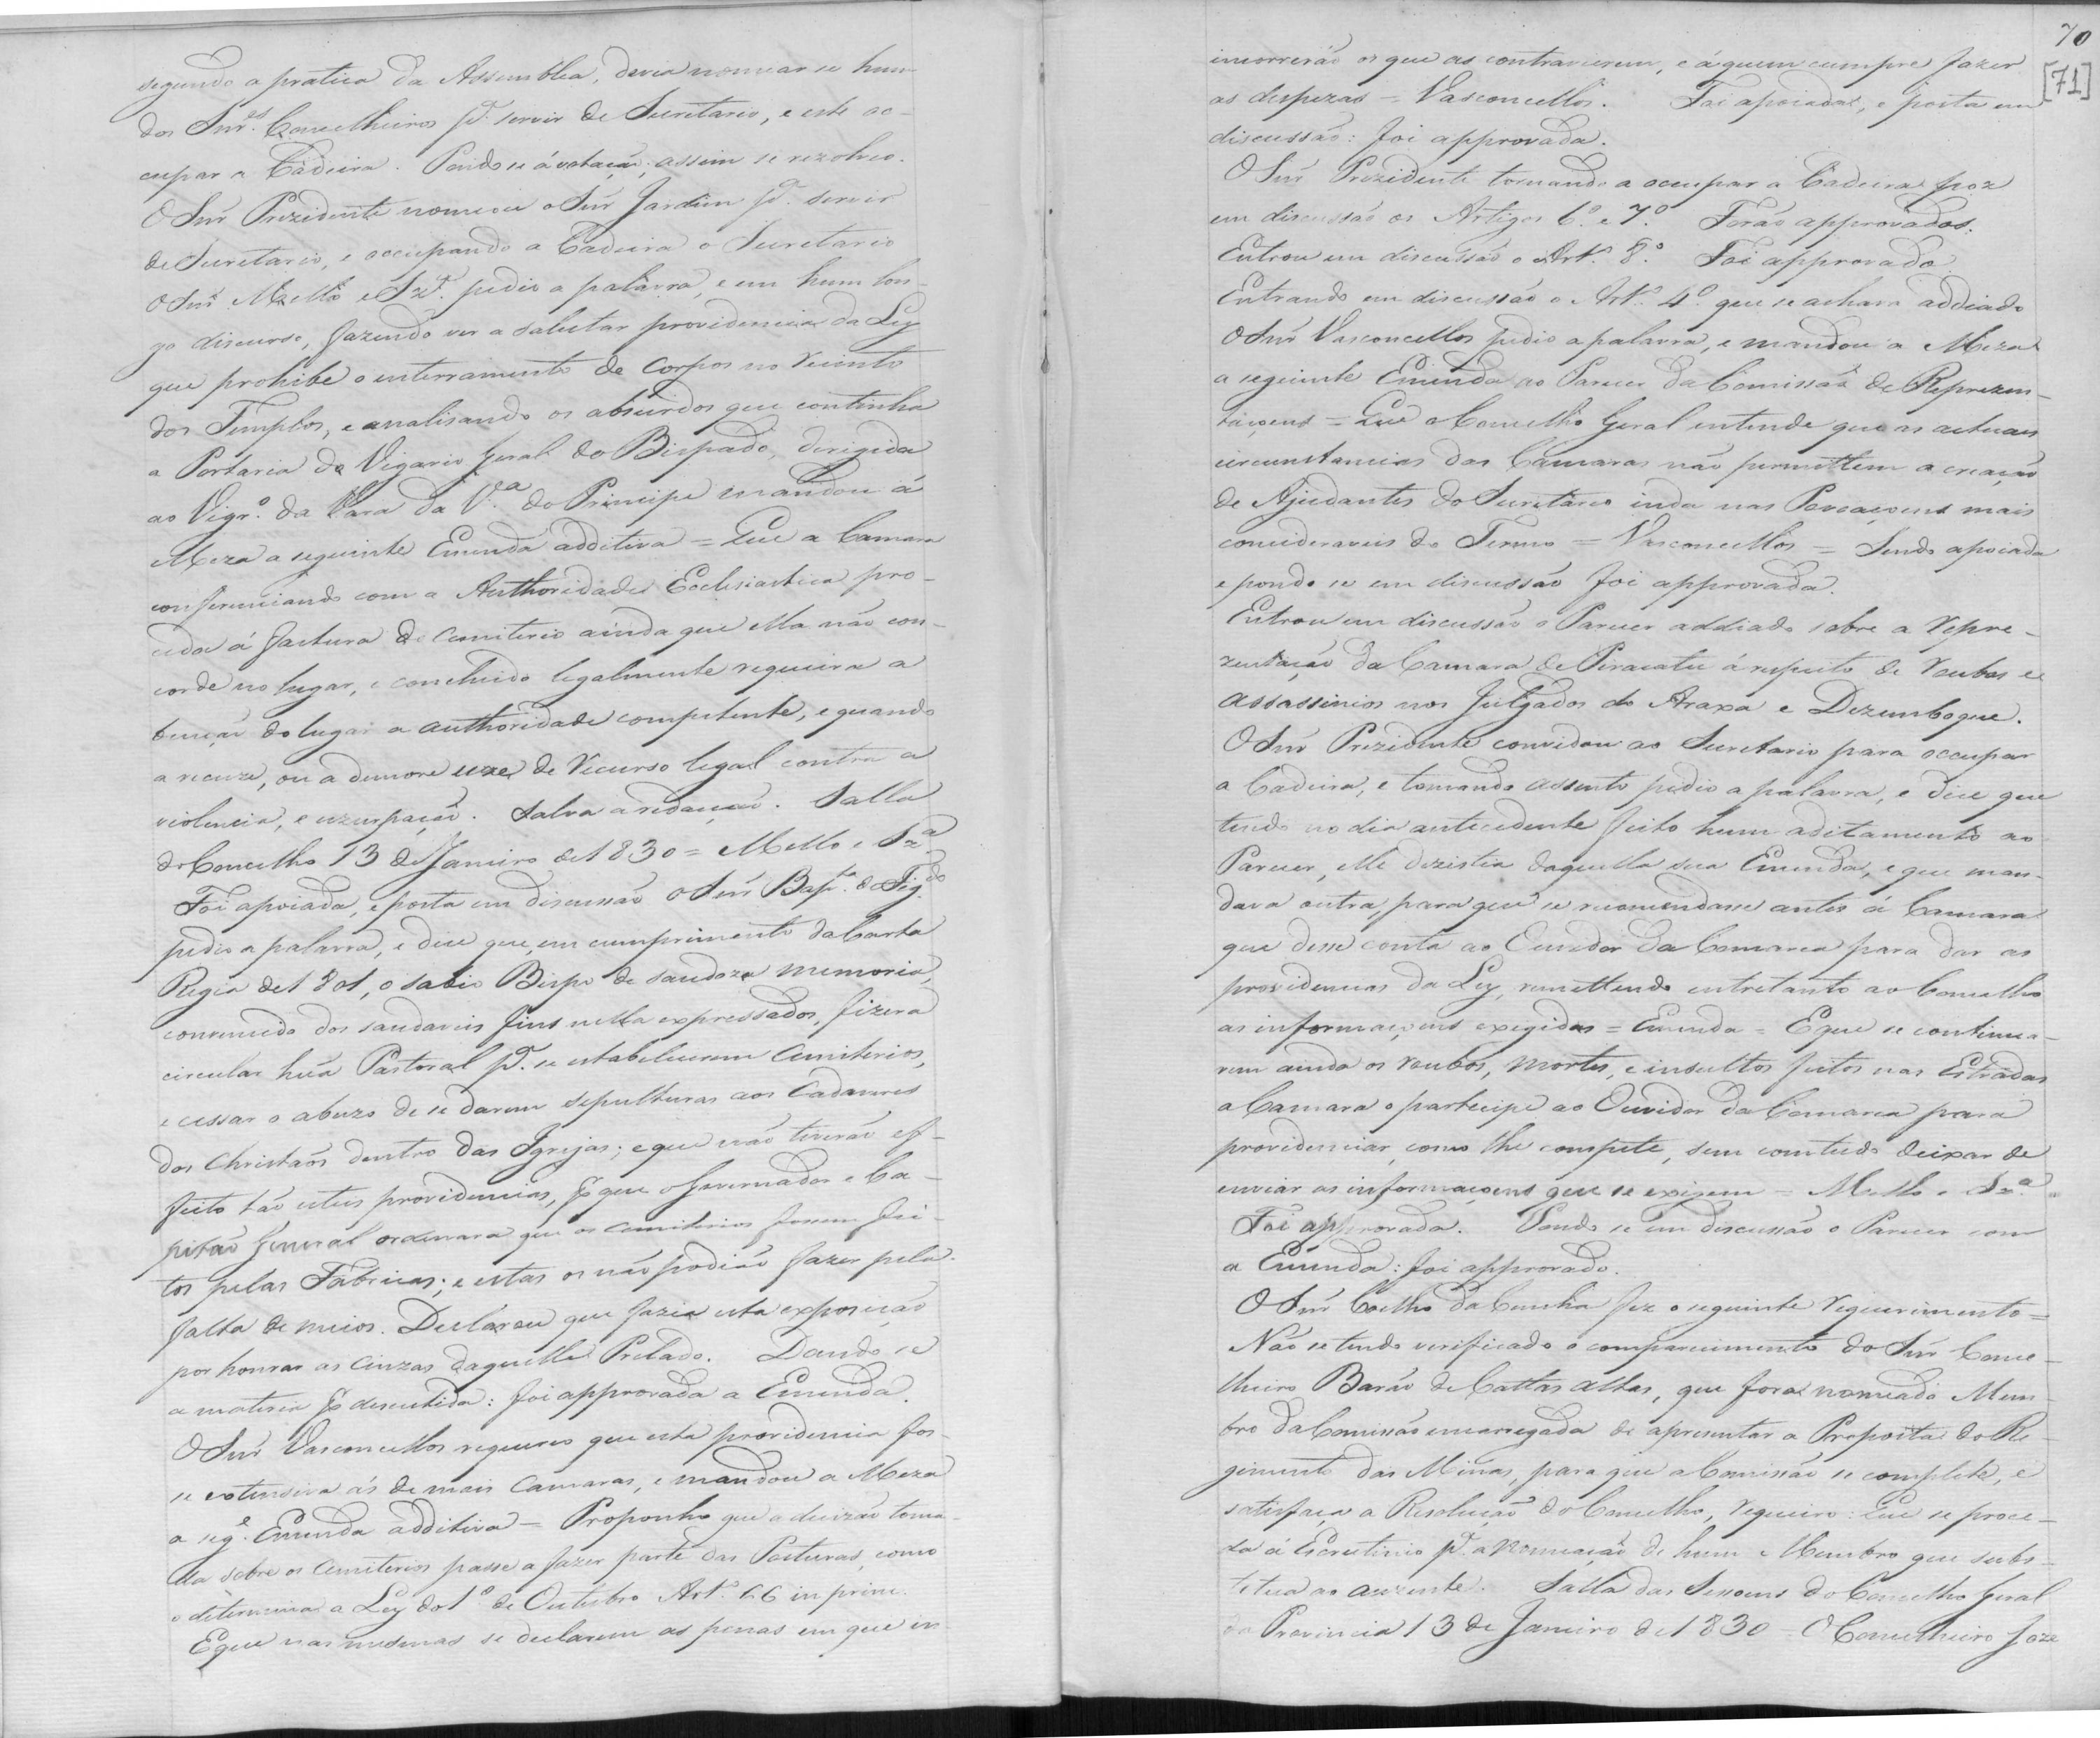 segundo a pratica da Assemblea, devia nomear se hum
dos Snr.es Conselheiros p.a servir de Secretario, e este oc-
cupar a Cadeira. Pondo se á votação; assim se rezolveo.
O Snr Prezidente nomeou o Snr Jardim p.a servir
de Secretario, e occupando a Cadeira o Secretario
O Snr Mello e Sz.a pedio a palavra, e em hum lon-
go discurso, fazendo ver a salutar providencia da Ley
que prohibe o enterramento de Corpos no recinto
dos Templos, e analisando os absurdos que continha
a Portaria do Vigario Geral do Bispado, dirigida
ao Vigr.o da Vara da V.a do Principe mandou á
Meza a seguinte Emenda additiva = Que a Camara
conferenciando com a Authoridade Ecclesiastica pro-
ceda á factura do Cemiterio ainda que ella não con-
corde no lugar, e concluido legalmente requeira a
benção do lugar a authoridade competente, e quando
a recuze, ou a demore uze de recurso legal contra a
violencia, e uzurpação. Salva a redacção. Salla
do Concelho 13 de Janeiro de 1830 = Mello e Sz.a
Foi apoiada, e posta em discussão o Snr Bap.ta de Fig.do
pedio a palavra, e dice que, em cumprimento da Carta
Regia de 1801, o sabio Bispo de saudoza memoria,
convencido dos saudaveis fins nella expressados, fizera
circular hũa Pastoral p.a se estabelecerem Cemiterios,
e cessar o abuzo de se darem sepulturas aos Cadaveres
dos Christãos dentro das Igrejas; e que não tiverão ef-
feito tão uteis providencias, p.r que o Governador e Ca-
pitão General ordenara que os cemiterios fossem fei-
tos pelas Fabricas; e estas os não podião fazer pela
falta de meios. Declarou que fazia esta exposição
por honrar as Cinzas daquelle Prelado. Dando se
a materia p.r descutida: foi approvada a Emenda.
O Snr Vasconcellos requereo que esta providencia fos-
se extensiva ás de mais Camaras, e mandou a Meza
a seg.e Emenda additiva = Proponho que a decizão toma-
da sobre os Cemiterios passe a fazer parte das Posturas, como
o determina a Ley do 1.o de Outubro Art.o 66 in princ.
E que nas mesmas se declarem as penas em que in-
70
[71]
incorrerão os que as contravierem, e á quem cumpre fazer
as despezas = Vasconcellos. Foi apoiada, e posta em
discussão: foi approvada.
O Snr Prezidente tornando a occupar a Cadeira poz
em discussão os Artigos 6.o e 7.o Forão approvados.
Entrou em discussão o Art.o 8.o Foi approvado
Entrando em discussão o Art.o 4.o que se achava addiado
O Snr Vasconcellos pedio a palavra, e mandou a Meza
a seguinte Emenda ao Parecer da Comissão de Reprezen-
taçoens = Que o Concelho Geral entende que as actuaes
circunstancias das Camaras não permittem a creação
de Ajudantes do Secretario inda nas Povoaçoens mais
concideraveis do Termo = Vasconcellos = Sendo apoiada
e pondo se em discussão foi approvada.
Entrou em discussão o Parecer addiado sobre a repre-
zentação da Camara de Paracatu á respeito de roubos e
assassinios nos Julgados do Araxa e Dezemboque.
O Snr Prezidente convidou ao Secretario para occupar
a Cadeira, e tomando assento pedio a palavra, e dice que
tendo no dia antecedente feito hum aditamento ao
Parecer, elle dezistia daquella sua Emenda, e que man-
dava outra, para que se recomendasse antes á Camara
que desse conta ao Ouvidor da Comarca para dar as
providencias da Ley, remettendo entretanto ao Concelho
as informaçoens exegidas = Emenda = E que se continua-
rem ainda os roubos, mortes, e insultos feitos nas Estradas
a Camara o participe ao Ouvidor da Comarca para
providenciar, como lhe compete, sem comtudo deixar de
enviar as informaçoens que se exigem = Mello e Sz.a =
Foi approvada. Pondo se em discussão o Parecer com
a Emenda: foi approvado.
O Snr Coelho da Cunha fez o seguinte requerimento =
Não se tendo verificado o comparecimento do Snr Conce-
lheiro Barão de Cattas altas, que fora nomeado Mem-
bro da Comissão encarregada de apresentar a Proposta do Re-
gimento das Minas, para que a Comissão se complete, e
satisfaça a Resolução do Concelho, requeiro: Que se proce-
da á Escrutinio p.a a nomeação de hum Membro que subs-
titua ao auzente. Salla das Sessoens do Concelho Geral
da Provincia 13 de Janeiro de 1830 = O Conselheiro Joze